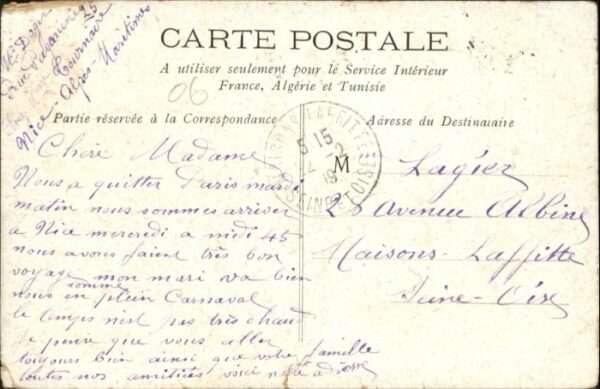 CARTE POSTALE
A utiliser seulement pour le Service Intérieur
France, Algérie et Tunisie
Partie réservée à la Correspondance
Adresse du Destinataire
Nice - Alpes-Maritimes
06
Chère Madame
Nous a quitter Paris mardi
matin nous sommes arriver
a Nice mercredi a midi 45
nous avous faient très bon
voyage mon mari va bien
nous somme en plein Carnaval
le temps n'est pas très chaud
Je pense que vous aller
toujours bien ainsi que votre famille
toutes nos amitiées voici
M Lagier
25 Avenue Albine
Maisons-Laffitte
Seine-Oise